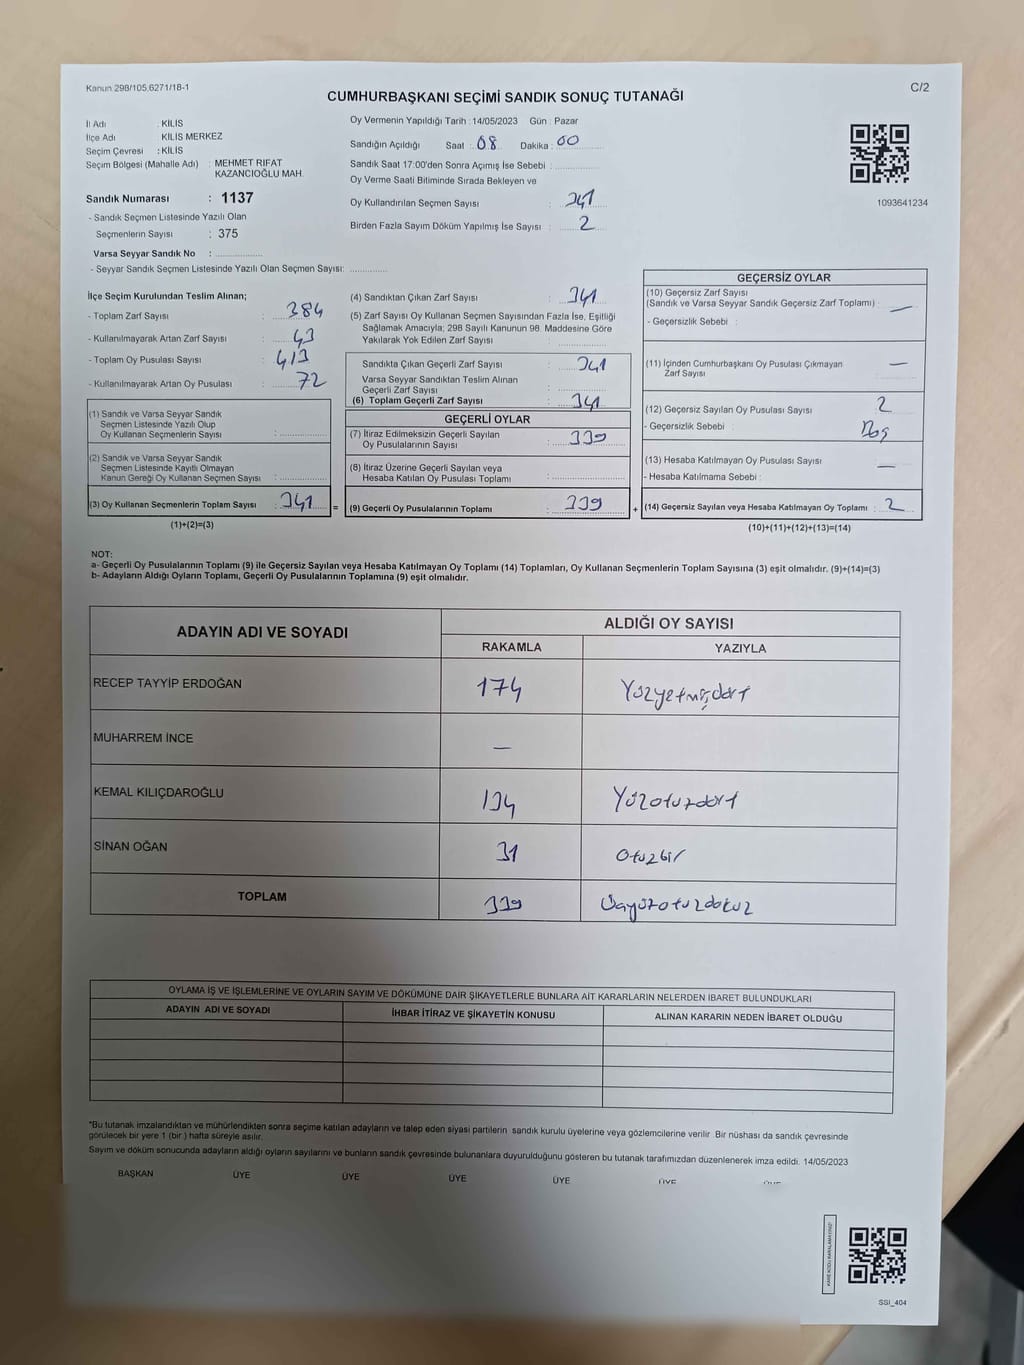 Kanun 298/105,6271/18-1
C/2
CUMHURBAŞKANI SEÇİMİ SANDIK SONUÇ TUTANAĞI
İl Adı : KİLİS
İlçe Adı : KİLİS MERKEZ
Seçim Çevresi : KİLİS
Seçim Bölgesi (Mahalle Adı) : MEHMET RIFAT
KAZANCIOĞLU MAH.
Sandık Numarası : 1137
- Sandık Seçmen Listesinde Yazılı Olan
Seçmenlerin Sayısı : 375
Varsa Seyyar Sandık No :
- Seyyar Sandık Seçmen Listesinde Yazılı Olan Seçmen Sayısı:
Oy Vermenin Yapıldığı Tarih :14/05/2023 Gün : Pazar
Sandığın Açıldığı Saat : 08 Dakika : 00
Sandık Saat 17:00'den Sonra Açımış İse Sebebi :
Oy Verme Saati Bitiminde Sırada Bekleyen ve
Oy Kullandırılan Seçmen Sayısı : 341
Birden Fazla Sayım Döküm Yapılmış İse Sayısı : 2
1093641234
İlçe Seçim Kurulundan Teslim Alınan;
- Toplam Zarf Sayısı : 384
- Kullanılmayarak Artan Zarf Sayısı : 43
- Toplam Oy Pusulası Sayısı : 413
- Kullanılmayarak Artan Oy Pusulası : 72
(1) Sandık ve Varsa Seyyar Sandık
Seçmen Listesinde Yazılı Olup
Oy Kullanan Seçmenlerin Sayısı :
(2) Sandık ve Varsa Seyyar Sandık
Seçmen Listesinde Kayıtlı Olmayan
Kanun Gereği Oy Kullanan Seçmen Sayısı :
(3) Oy Kullanan Seçmenlerin Toplam Sayısı : 341 =
(1)+(2)=(3)
(4) Sandıktan Çıkan Zarf Sayısı : 341
(5) Zarf Sayısı Oy Kullanan Seçmen Sayısından Fazla İse, Eşitliği
Sağlamak Amacıyla; 298 Sayılı Kanunun 98. Maddesine Göre
Yakılarak Yok Edilen Zarf Sayısı :
Sandıkta Çıkan Geçerli Zarf Sayısı : 341
Varsa Seyyar Sandıktan Teslim Alınan
Geçerli Zarf Sayısı :
(6) Toplam Geçerli Zarf Sayısı : 341
GEÇERLİ OYLAR
(7) İtiraz Edilmeksizin Geçerli Sayılan
Oy Pusulalarının Sayısı : 339
(8) İtiraz Üzerine Geçerli Sayılan veya
Hesaba Katılan Oy Pusulası Toplamı :
(9) Geçerli Oy Pusulalarının Toplamı : 339 +
GEÇERSİZ OYLAR
(10) Geçersiz Zarf Sayısı
(Sandık ve Varsa Seyyar Sandık Geçersiz Zarf Toplamı) : —
- Geçersizlik Sebebi :
(11) İçinden Cumhurbaşkanı Oy Pusulası Çıkmayan
Zarf Sayısı : —
(12) Geçersiz Sayılan Oy Pusulası Sayısı : 2
- Geçersizlik Sebebi : Boş
(13) Hesaba Katılmayan Oy Pusulası Sayısı : —
- Hesaba Katılmama Sebebi :
(14) Geçersiz Sayılan veya Hesaba Katılmayan Oy Toplamı : 2
(10)+(11)+(12)+(13)=(14)
NOT:
a- Geçerli Oy Pusulalarının Toplamı (9) ile Geçersiz Sayılan veya Hesaba Katılmayan Oy Toplamı (14) Toplamları, Oy Kullanan Seçmenlerin Toplam Sayısına (3) eşit olmalıdır. (9)+(14)=(3)
b- Adayların Aldığı Oyların Toplamı, Geçerli Oy Pusulalarının Toplamına (9) eşit olmalıdır.
ADAYIN ADI VE SOYADI ALDIĞI OY SAYISI
RAKAMLA YAZIYLA
RECEP TAYYİP ERDOĞAN 174 Yüzyetmişdört
MUHARREM İNCE —
KEMAL KILIÇDAROĞLU 134 Yüzotuzdört
SİNAN OĞAN 31 Otuzbir
TOPLAM 339 Üçyüzotuzdokuz
OYLAMA İŞ VE İŞLEMLERİNE VE OYLARIN SAYIM VE DÖKÜMÜNE DAİR ŞİKAYETLERLE BUNLARA AİT KARARLARIN NELERDEN İBARET BULUNDUKLARI
ADAYIN ADI VE SOYADI İHBAR İTİRAZ VE ŞİKAYETİN KONUSU ALINAN KARARIN NEDEN İBARET OLDUĞU
*Bu tutanak imzalandıktan ve mühürlendikten sonra seçime katılan adayların ve talep eden siyasi partilerin sandık kurulu üyelerine veya gözlemcilerine verilir. Bir nüshası da sandık çevresinde
görülecek bir yere 1 (bir ) hafta süreyle asılır.
Sayım ve döküm sonucunda adayların aldığı oyların sayılarını ve bunların sandık çevresinde bulunanlara duyurulduğunu gösteren bu tutanak tarafımızdan düzenlenerek imza edildi. 14/05/2023
BAŞKAN ÜYE ÜYE ÜYE ÜYE ÜYE ÜYE
KARE KODU KARALAMAYINIZ!
SSI_404